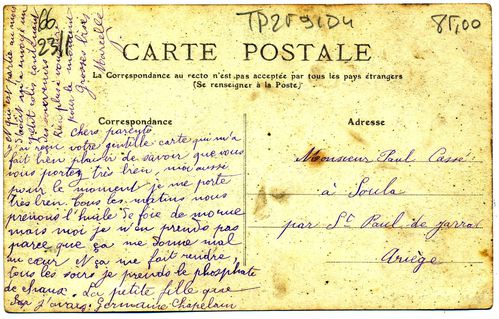 66.
23/1
TP259iD4
85,00
CARTE POSTALE
La Correspondance au recto n'est pas acceptée par tous les pays étrangers
(Se renseigner à la Poste)
Correspondance
Adresse
Chers parents
J'ai reçu votre gentille carte qui m'a
fait bien plaisir de savoir que vous
vous portez très bien, moi aussi
pour le moment je me porte
très bien. Tous les matins nous
prenons l'huile de foie de morue
mais moi je n'en prends pas
parce que ça me donne mal
au cœur et ça me fait rendre,
tous les soirs je prends le phosphate
de chaux. La petite fille que
j'avais. Germaine Chapelain
et qui est partie au mois
d'août m'a envoyé un
petit colis contenant
des souvenirs
Rien plus à vous dire
pour le moment
Grosses bises
Marcelle
Monsieur Paul Casse
à Soula
par St Paul de Jarrat
Ariège